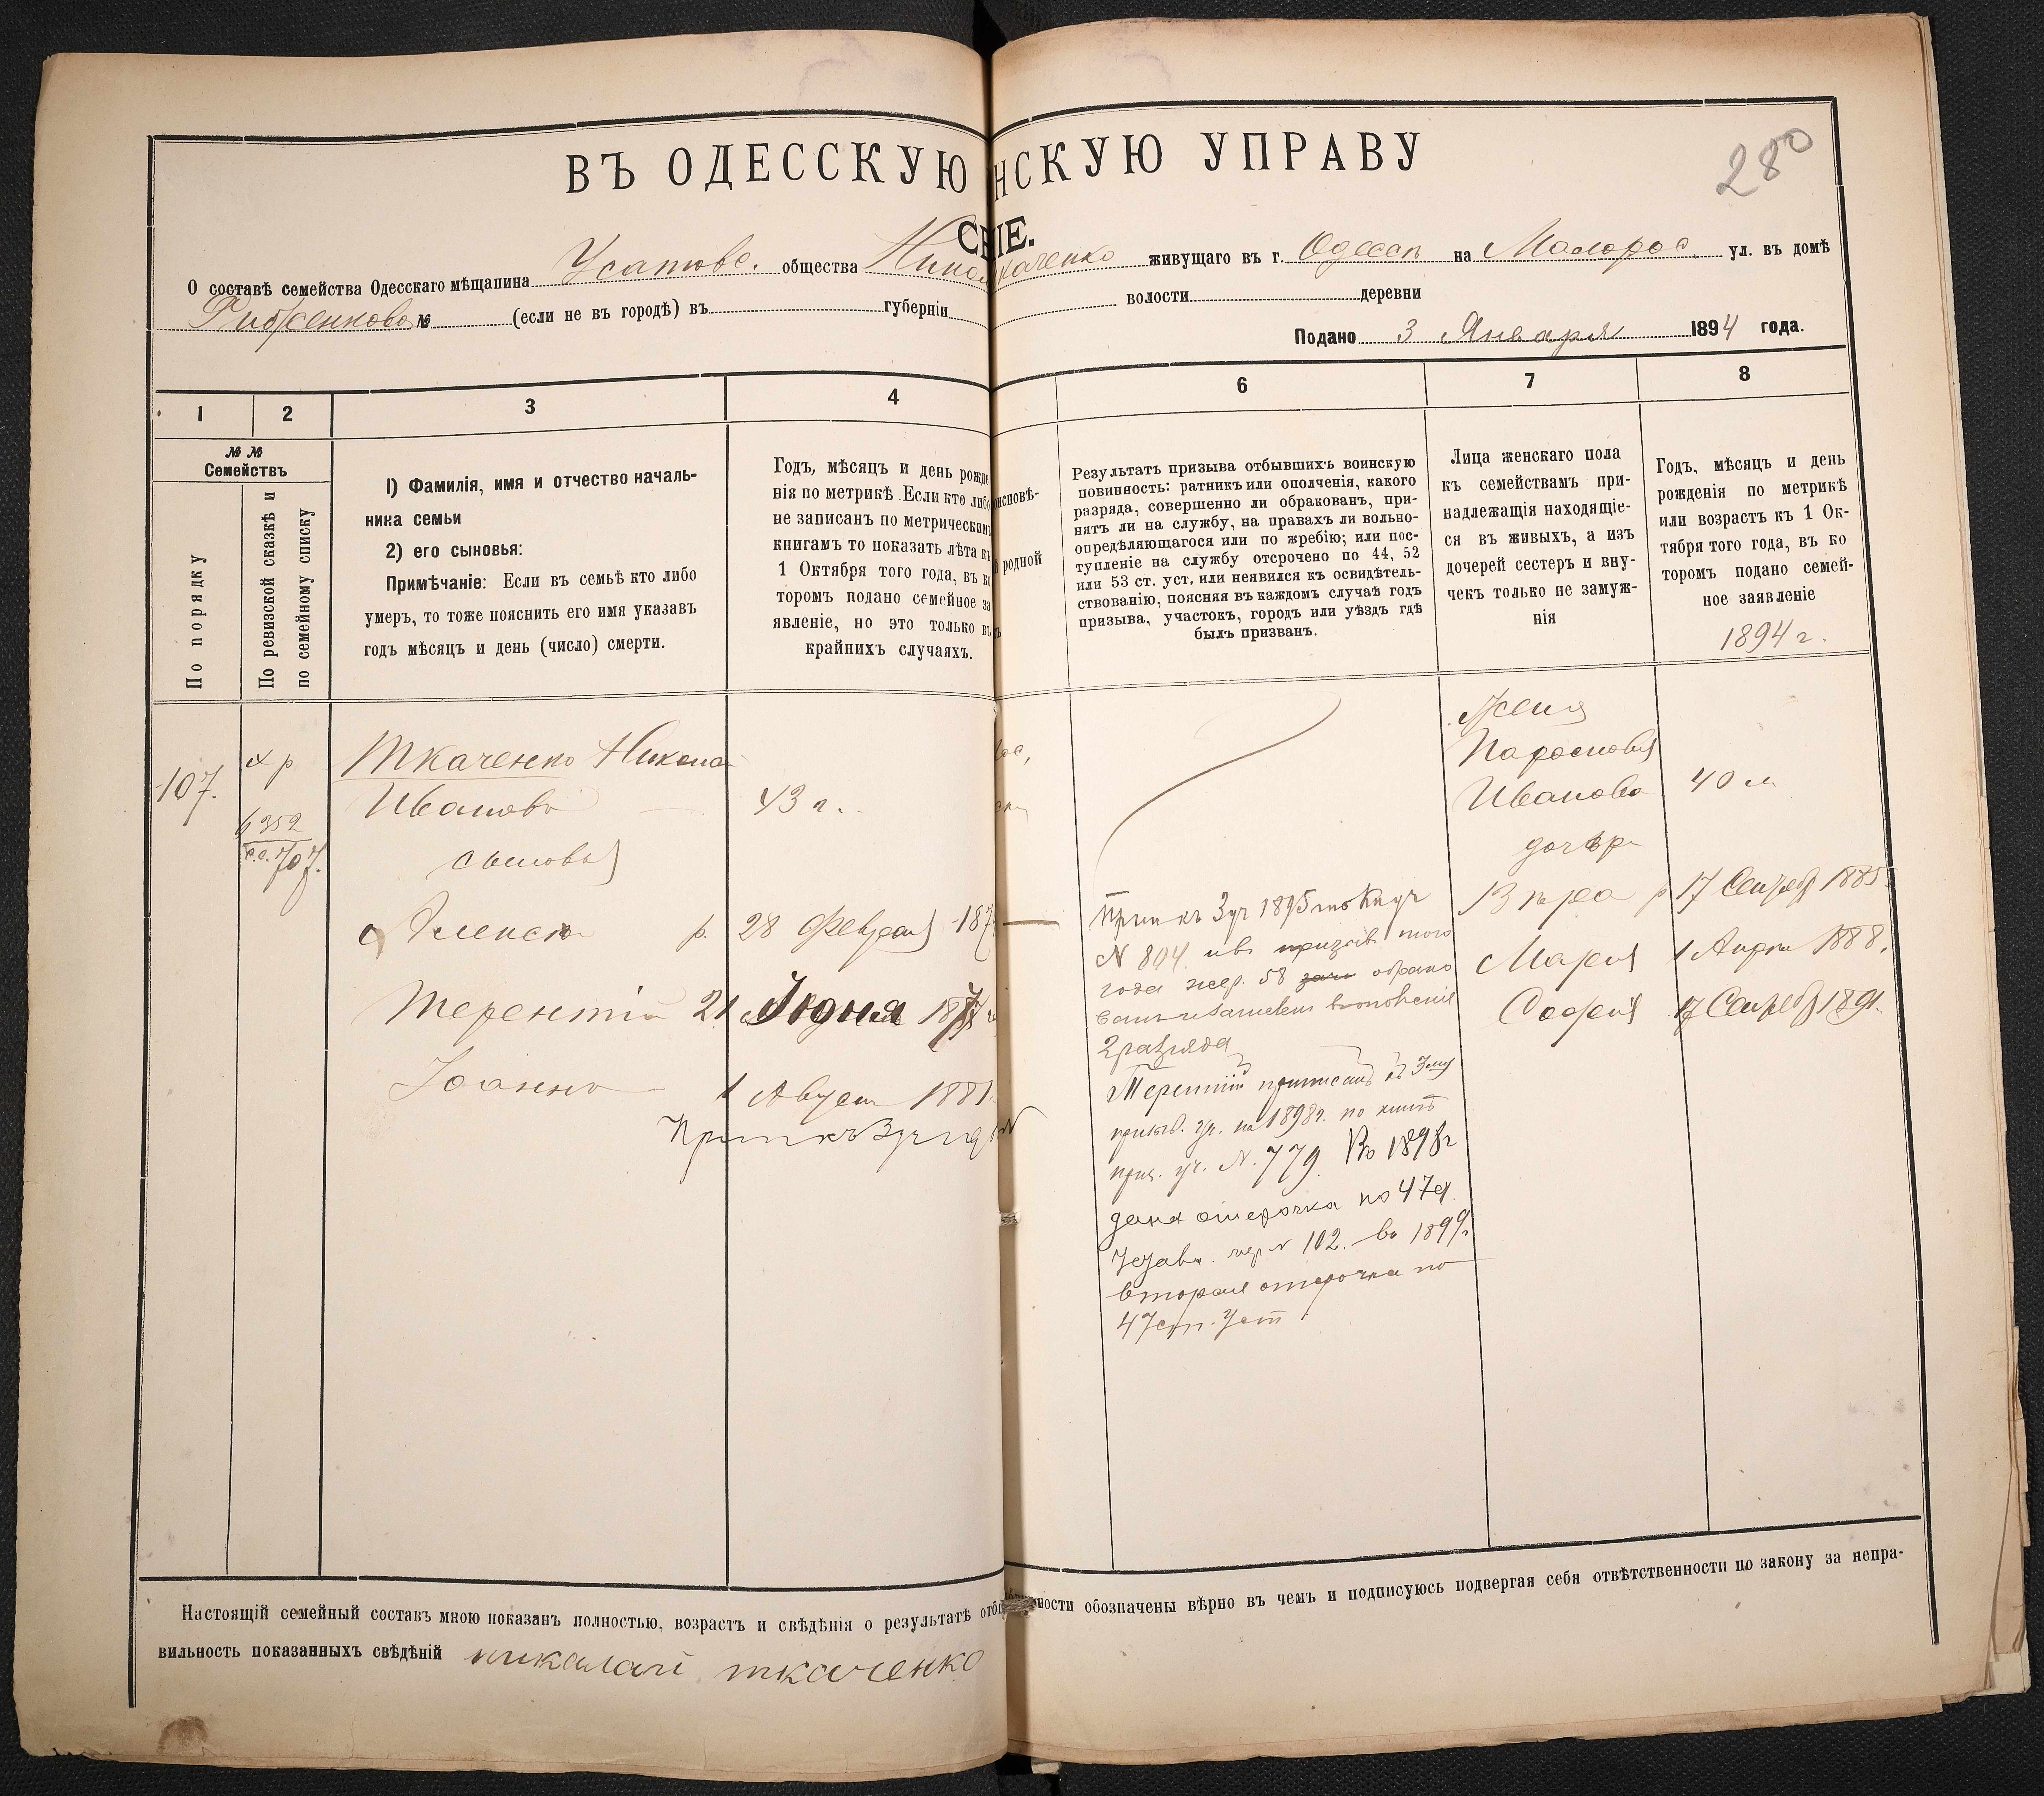 280
ВЪ ОДЕССКУЮ НСКУЮ УПРАВУ
НІЕ.
О составѣ семейства Одесскаго мѣщанина Усатово. общества Ткаченко живущаго въ г. Одессѣ на Малорос. ул. въ домѣ
№ (если не въ городѣ) въ губерніи волости деревни
Подано 3 Января 1894 года.
1 2 3 4 6 7 8
№ № Семействъ
По порядку
По ревизской сказкѣ и по семейному списку
1) Фамилія, имя и отчество началь-
ника семьи
2) его сыновья:
Примѣчаніе: Если въ семьѣ кто либо
умеръ, то тоже пояснить его имя указавъ
годъ мѣсяцъ и день (число) смерти.
Годъ, мѣсяцъ и день рожде
нія по метрикѣ. Если кто либо
не записанъ по метрическимъ
книгамъ то показать лѣта къ
1 Октября того года, въ ко
торомъ подано семейное за
явленіе, но это только въ
крайнихъ случаяхъ.
исповѣ-
родной
Результатъ призыва отбывшихъ воинскую
повинность: ратникъ или ополченія, какого
разряда, совершенно ли обракованъ, при-
нятъ ли на службу, на правахъ ли вольно-
опредѣляющагося или по жребію; или пос-
тупленіе на службу отсрочено по 44, 52
или 53 ст. уст. или неявился къ освидѣтель-
ствованію, поясняя въ каждомъ случаѣ годъ
призыва, участокъ, городъ или уѣздъ гдѣ
былъ призванъ.
Лица женскаго пола
къ семействамъ при-
надлежащія находящіе-
ся въ живыхъ, а изъ
дочерей сестеръ и вну-
чекъ только не замуж-
нія
Годъ, мѣсяцъ и день
рожденія по метрикѣ
или возрастъ къ 1 Ок-
тября того года, въ ко
торомъ подано семей-
ное заявленіе
1894 г.
107.
хр
6352
с.с. 707.
Ткаченко Никола
Ивановъ 43 г.
сыновья
Алексѣй р. 28 Февраля 187
Терентій 21 Іюня 187
Іоаннъ 1 Августа 1881
Прип къ 3 уч
Прип къ 3 уч 1895 по
N 804 изв призыв того
года жер. 58
2 разряда
Терентій приписанъ къ 3му
призыв. уч. на 1898 г. по книгѣ
приз. уч. N. 779. Въ 1898 г
дана отсрочка по 47 ст.
Устава. жер N 102. въ 1899 г.
вторая отсрочка по
47 ст. Уст
Жена
Парасковья
Иванова 40 л
дочери
Вѣра р 17 Сентяб 1885
Марія 1 Апрѣ 1888.
Софія 17 Сентяб 1891.
Настоящій семейный составъ мною показанъ полностью, возрастъ и свѣдѣнія о результатѣ отб ности обозначены вѣрно въ чемъ и подписуюсь подвергая себя отвѣтственности по закону за непра-
вильность показанныхъ свѣдѣній николай ткаченко